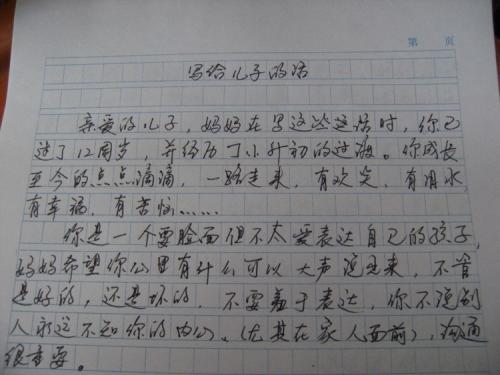 第 页
写给儿子的话
亲爱的儿子,妈妈在写这些话时,你已
过了12周岁,并经历了小升初的过渡。你成长
至今的点点滴滴,一路走来,有欢笑,有泪水,
有幸福,有苦恼......
你是一个要脸面但不太爱表达自己的孩子,
妈妈希望你心里有什么可以大声说出来,不管
是好的,还是坏的,不要羞于表达,你不说别
人永远不知你的内心。(尤其在家人面前),沟通
很重要。